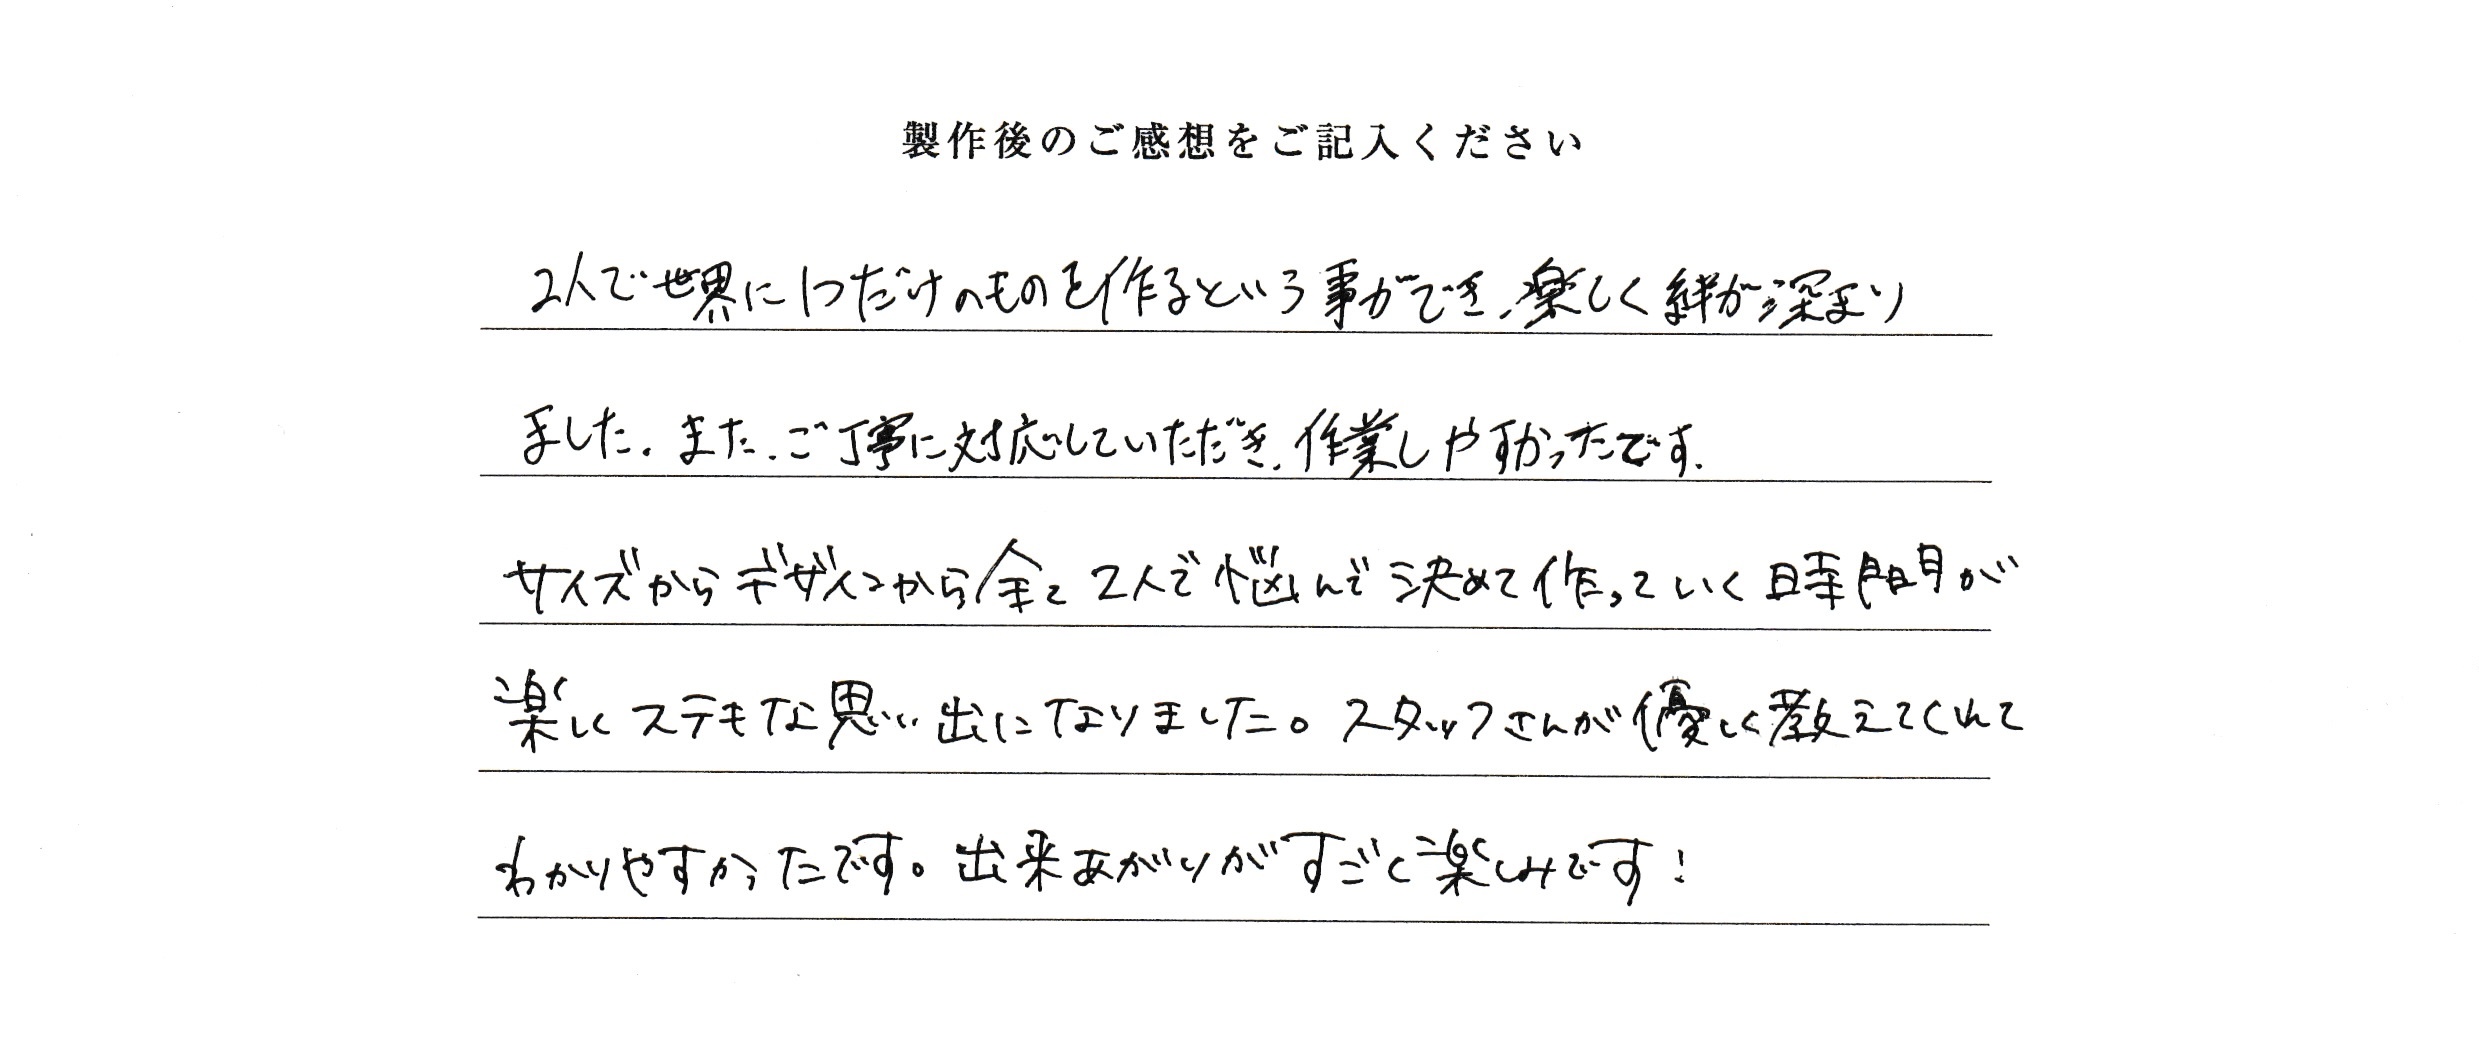 製作後のご感想をご記入ください
2人で世界に1つだけのものを作るという事ができ、楽しく絆が深まり
ました。また、ご丁寧に対応していただき、作業しやすかったです。
サイズからデザインから全て2人で悩んで決めて作っていく時間が
楽しくステキな思い出になりました。スタッフさんが優しく教えてくれて
わかりやすかったです。出来あがりがすごく楽しみです！